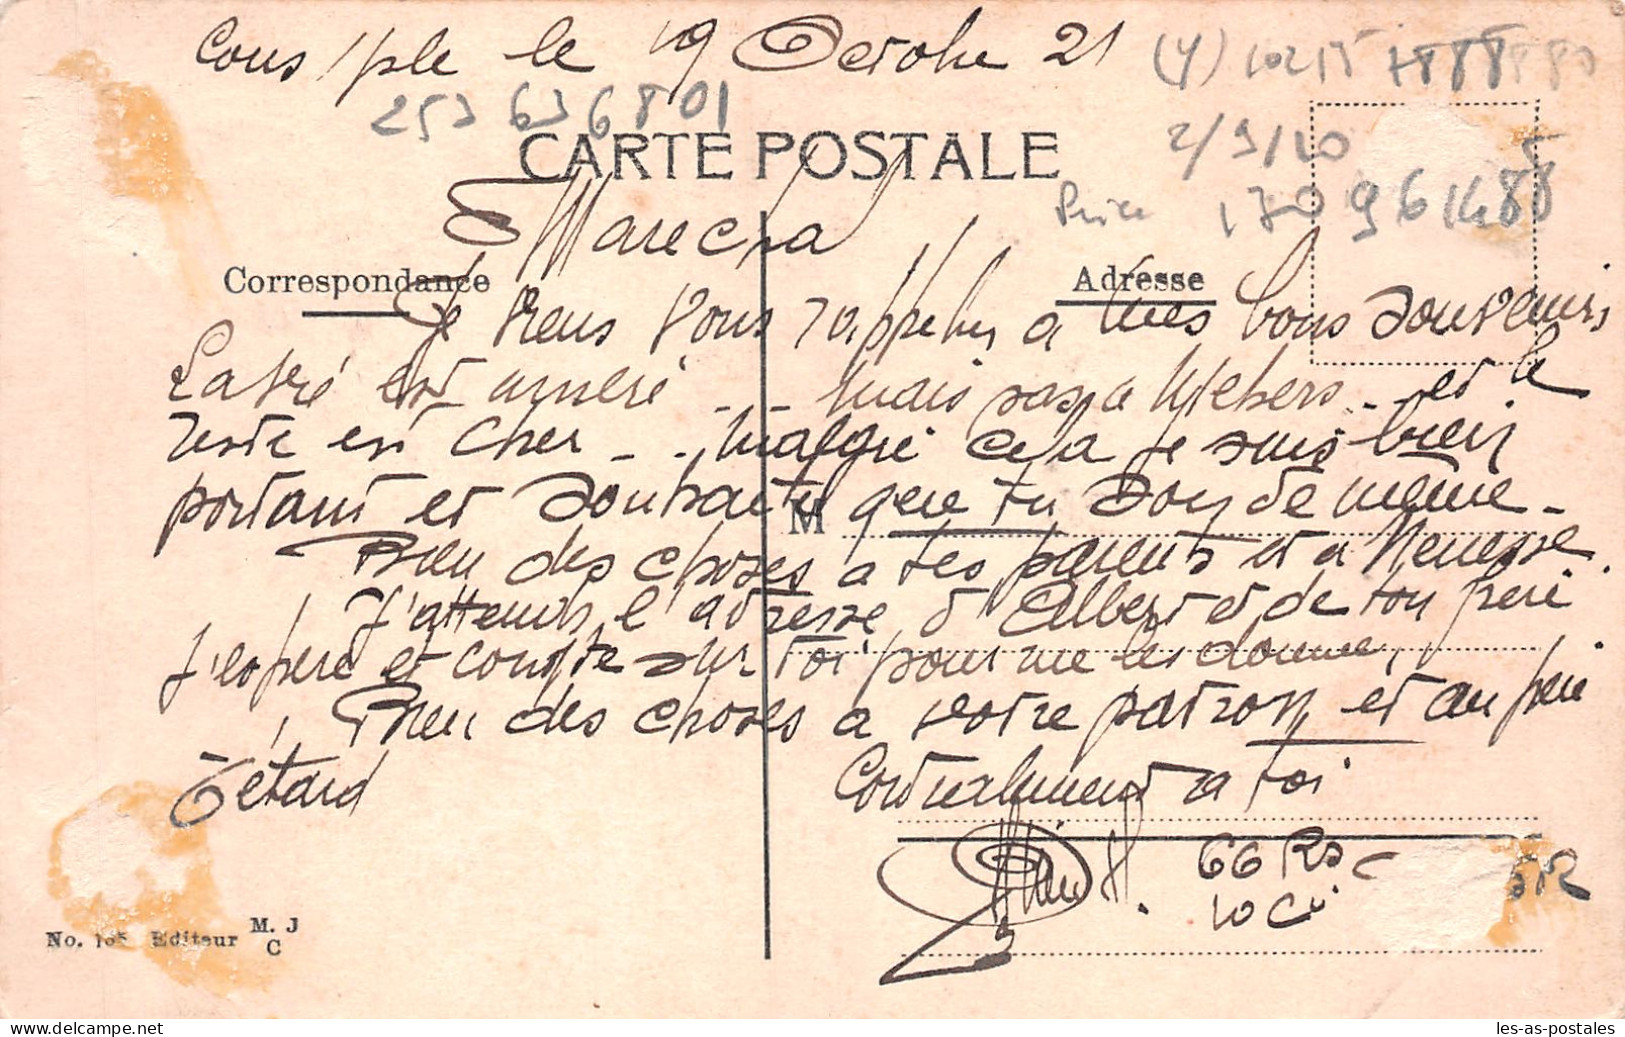 Cous/ple le 19 Octobre 21
(4) 10215
253 636801
2/9/20
CARTE POSTALE
170 961488
Marecha
Correspondance
Adresse
Je viens vous rappeler a mes bons souvenirs
est arrivé - - mais pas a - et le
reste est cher - - malgré cela je suis bien
portant et souhaite que tu soy de même -
M
Bien des choses a tes parents et a Menesse.
J'attends l'adresse d'Albert et de ton père
J'espère et compte sur toi pour me les donner,
Bien des choses a votre patron et au père
Tétard
Cordialement a toi
66 Rs
10 Ci
No. 105 Editeur M. J C
www.delcampe.net
les-as-postales